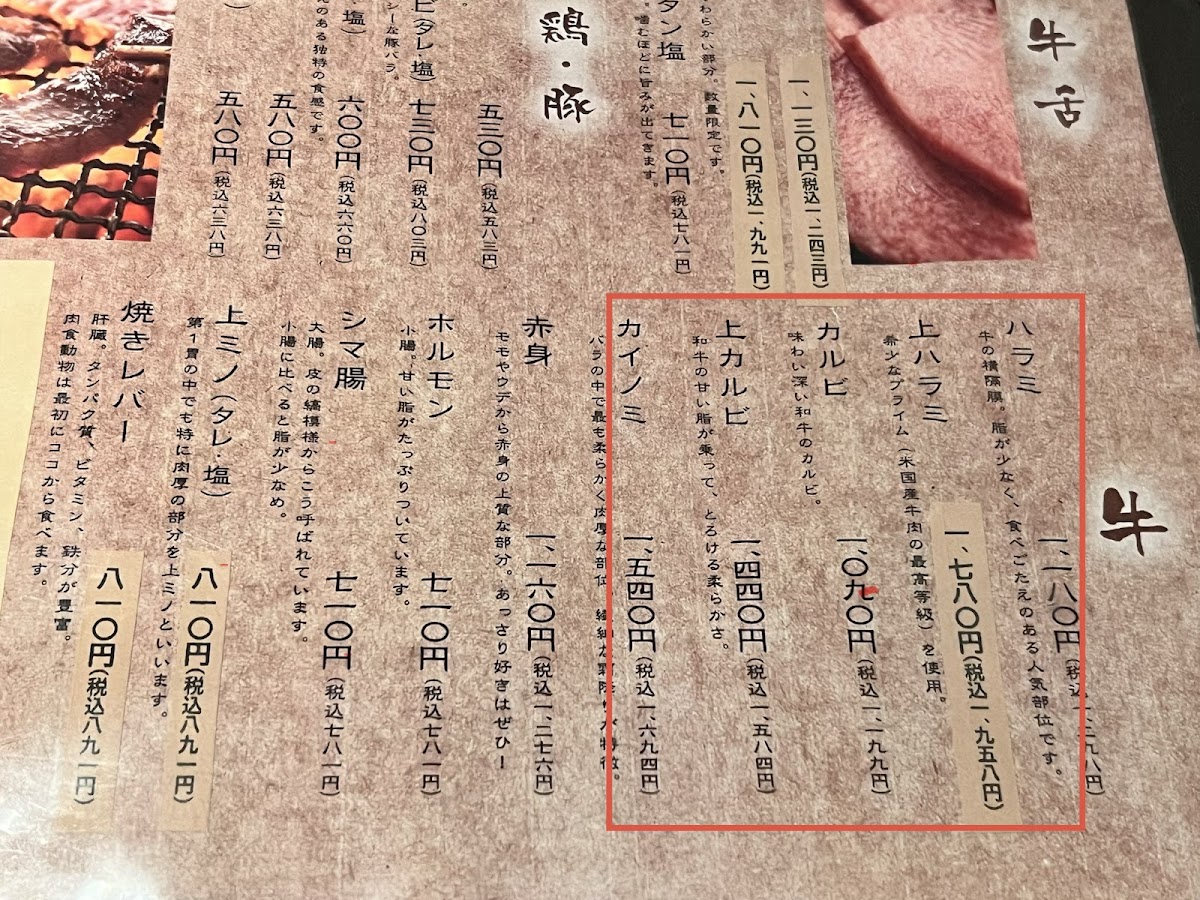 牛舌
一、一三〇円(税込一、二四三円)
一、八一〇円(税込一、九九一円)
わらかい部分。数量限定です。
タン塩 七一〇円(税込七八一円)
噛むほどに旨みが出てきます。
鶏・豚
五三〇円(税込五八三円)
(タレ・塩) 七三〇円(税込八〇三円)
シーな豚バラ。
塩) 六〇〇円(税込六六〇円)
のある独特の食感です。
五八〇円(税込六三八円)
五八〇円(税込六三八円)
牛
ハラミ 一、一八〇円(税込一、二九八円)
牛の横隔膜。脂が少なく、食べごたえのある人気部位です。
上ハラミ 一、七八〇円(税込一、九五八円)
希少なプライム(米国産牛肉の最高等級)を使用。
カルビ 一、〇九〇円(税込一、一九九円)
味わい深い和牛のカルビ。
上カルビ 一、四四〇円(税込一、五八四円)
和牛の甘い脂が乗って、とろける柔らかさ。
カイノミ 一、五四〇円(税込一、六九四円)
バラの中で最も柔らかく肉厚な部位。繊細な霜降りが特徴。
赤身 一、一六〇円(税込一、二七六円)
モモやウデから赤身の上質な部分。あっさり好きはぜひ!
ホルモン 七一〇円(税込七八一円)
小腸。甘い脂がたっぷりついています。
シマ腸 七一〇円(税込七八一円)
大腸。皮の縞模様からこう呼ばれています。
小腸に比べると脂が少なめ。
上ミノ(タレ・塩) 八一〇円(税込八九一円)
第1胃の中でも特に肉厚の部分を上ミノといいます。
焼きレバー 八一〇円(税込八九一円)
肝臓。タンパク質、ビタミン、鉄分が豊富。
肉食動物は最初にココから食べます。